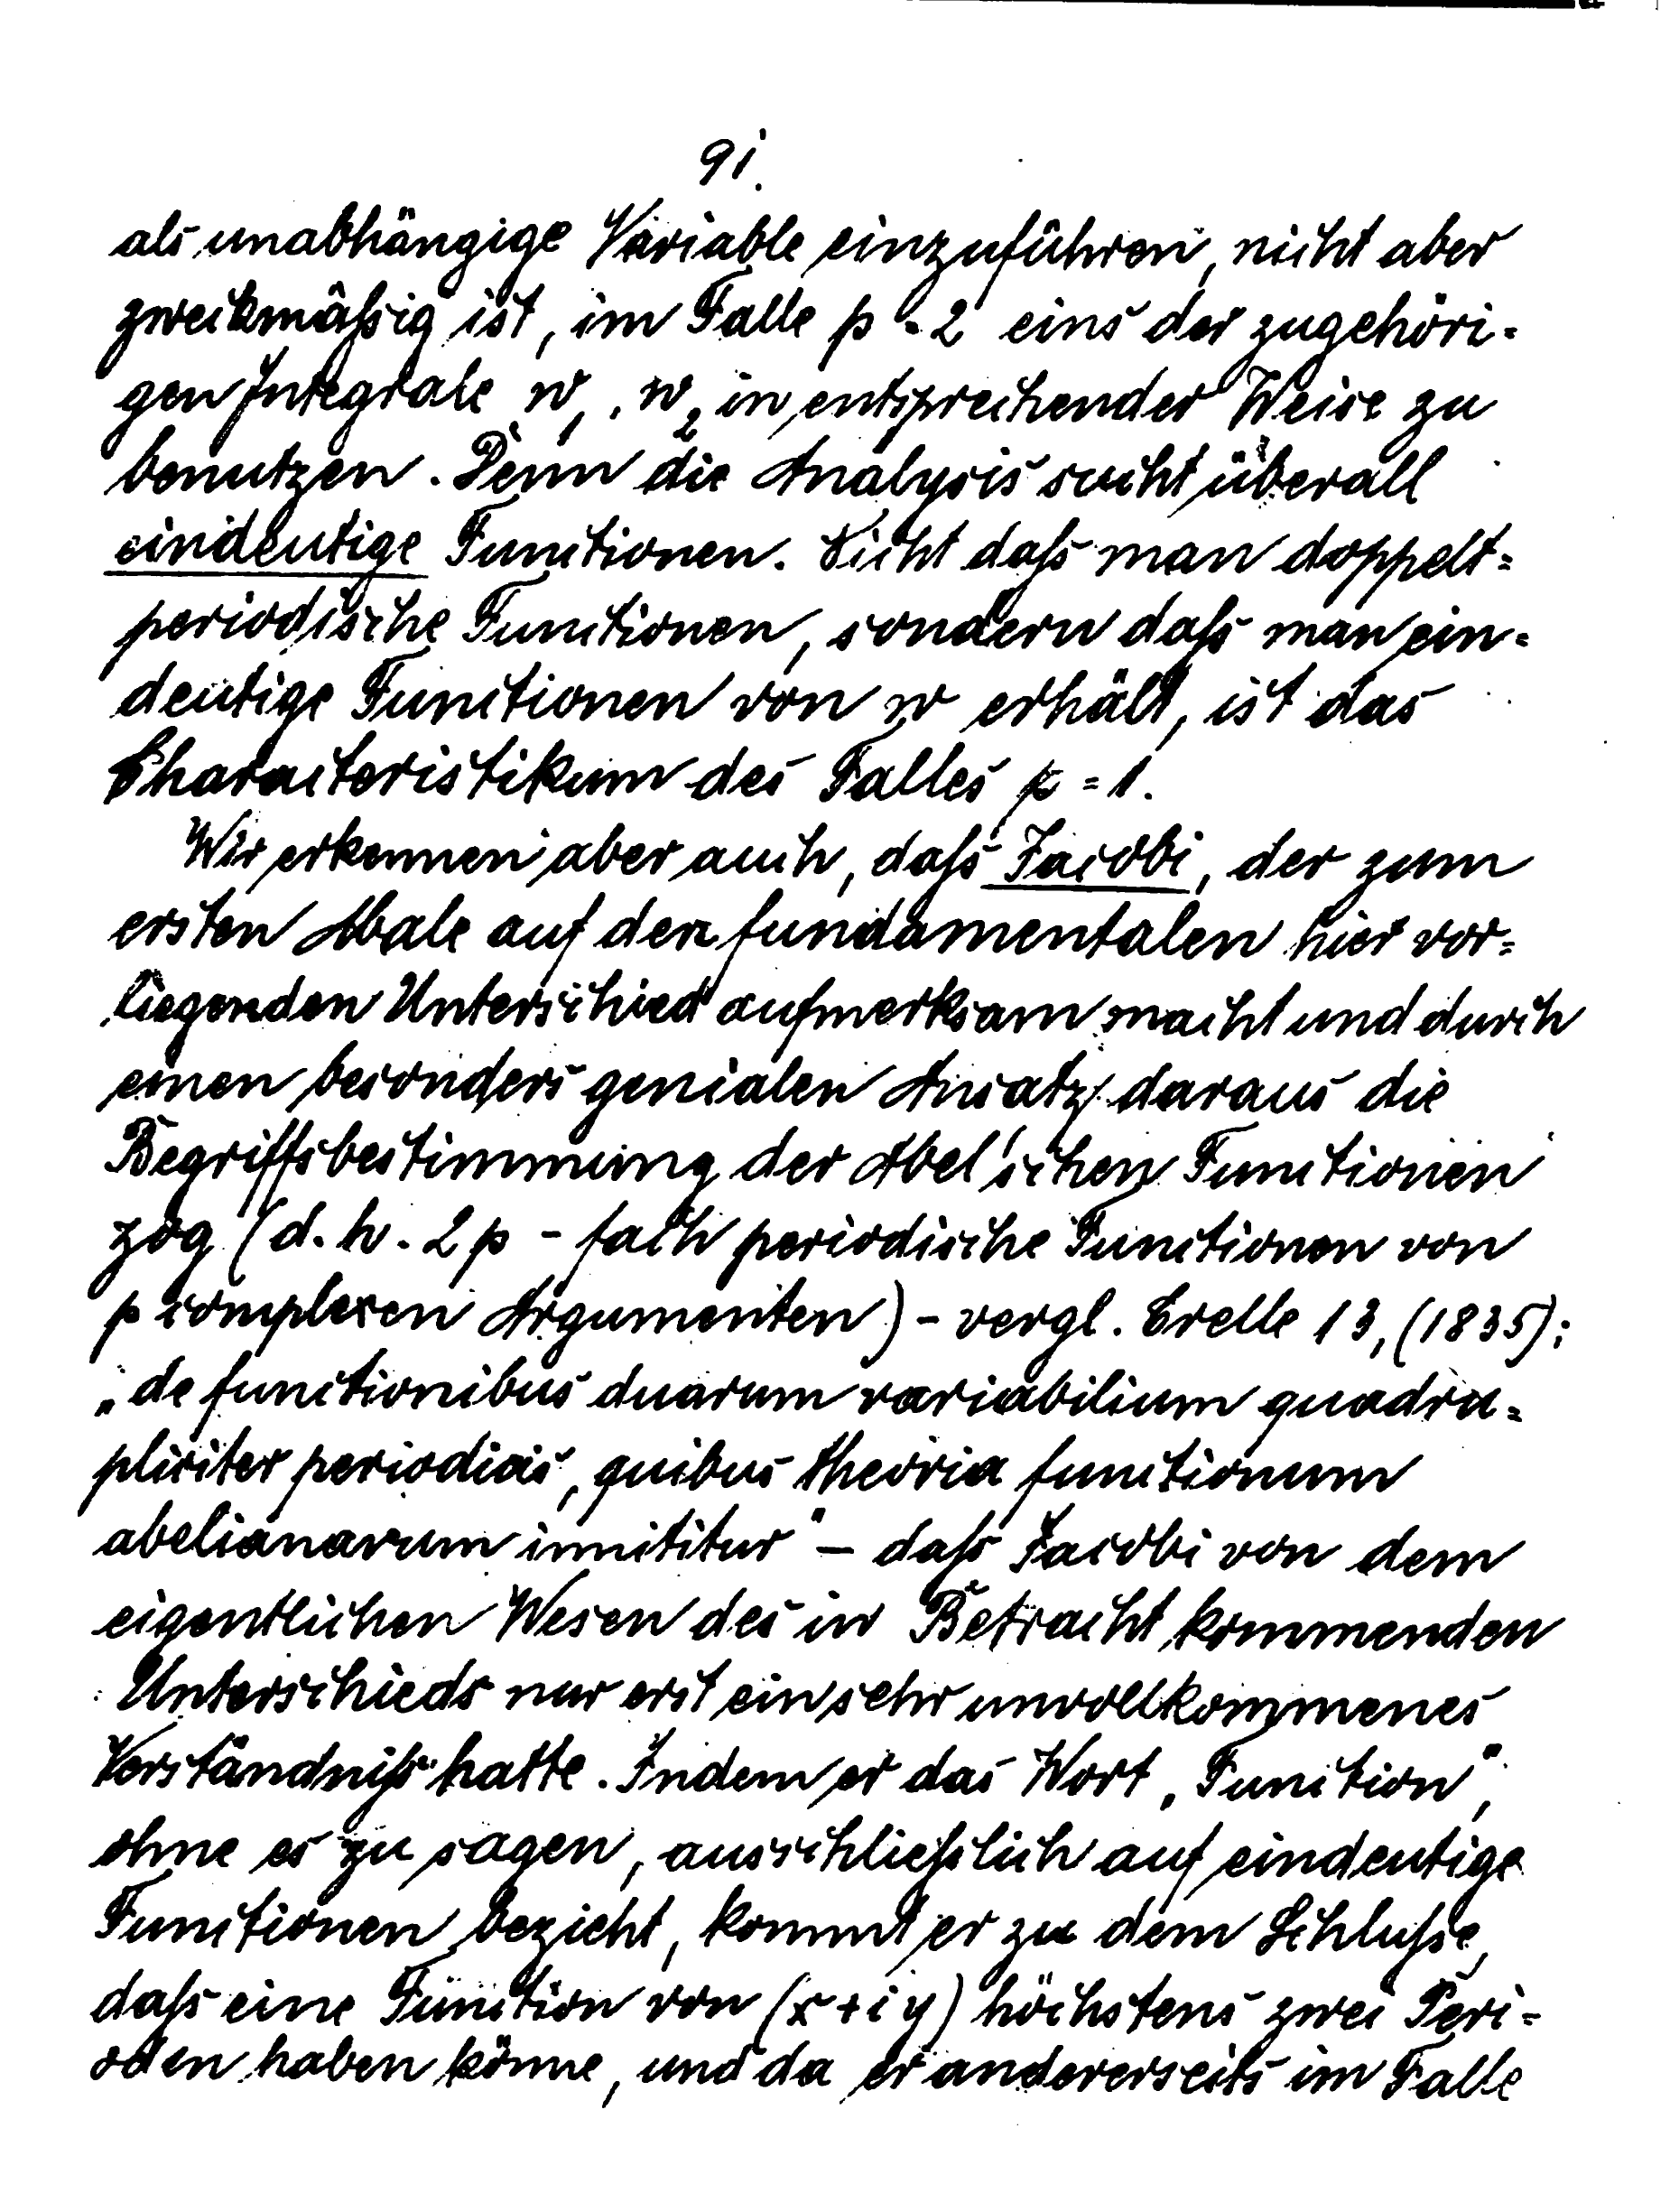 91.
als unabhängige Variable einzuführen, nicht aber
zweckmäßig ist, im Falle p = 2 eins der zugehöri=
gen Integrale w₁, w₂ in entsprechender Weise zu
benutzen. Denn die Analysis sucht überall
eindeutige Functionen. Nicht daß man doppelt=
periodische Functionen, sondern daß man ein=
deutige Functionen von w erhält, ist das
Characteristikum des Falles p = 1.
Wir erkennen aber auch, daß Jacobi, der zum
ersten Male auf den fundamentalen hier vor=
liegenden Unterschied aufmerksam macht und durch
einen besonders genialen Ansatz daraus die
Begriffsbestimmung der Abel'schen Functionen
zog (d. h. 2p - fach periodische Functionen von
p complexen Argumenten) - vergl. Crelle 13, (1835):
„de functionibus duarum variabilium quadru=
pliciter periodicis, quibus theoria functionum
abelianarum innititur" – daß Jacobi von dem
eigentlichen Wesen des in Betracht kommenden
Unterschieds nur erst ein sehr unvollkommenes
Verständniß hatte. Indem er das Wort „Function",
ohne es zu sagen, ausschließlich auf eindeutige
Functionen bezieht, kommt er zu dem Schluße,
daß eine Function von (x + i y) höchstens zwei Peri=
oden haben könne, und da er andererseits im Falle